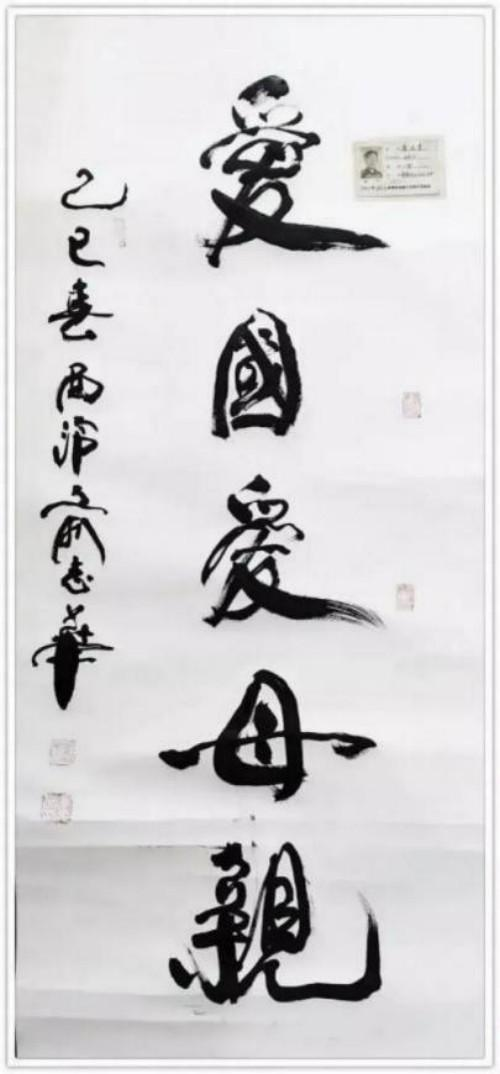 愛國愛母親
乙巳春西沛俞志華